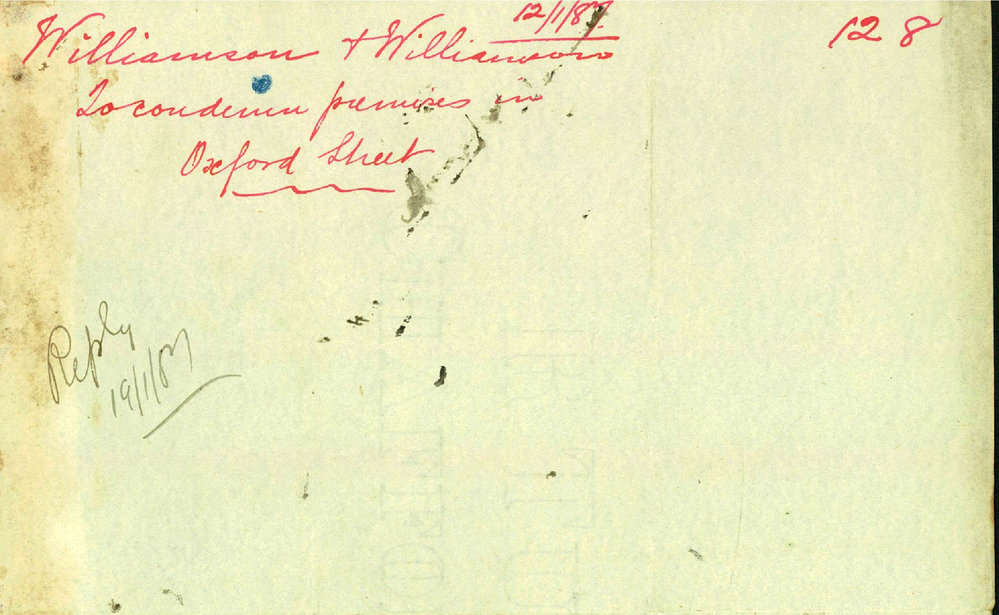 12/1/87.
Williamson & Williamson 128
To condemn premises in
Oxford Street
Reply
19/1/87